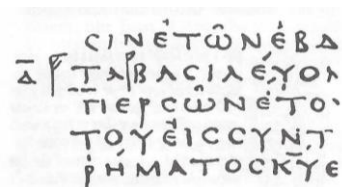 ϹΙΝΕΤΩΝΕΒΔ
Δ̅ ΤΑΒΑϹΙΛΕΥΟΝ
ΠΕΡϹΩΝΕΤΟΥ
ΤΟΥΕΙϹϹΥΝΤ
ΡΗΜΑΤΟϹΚ̅Υ̅Ε